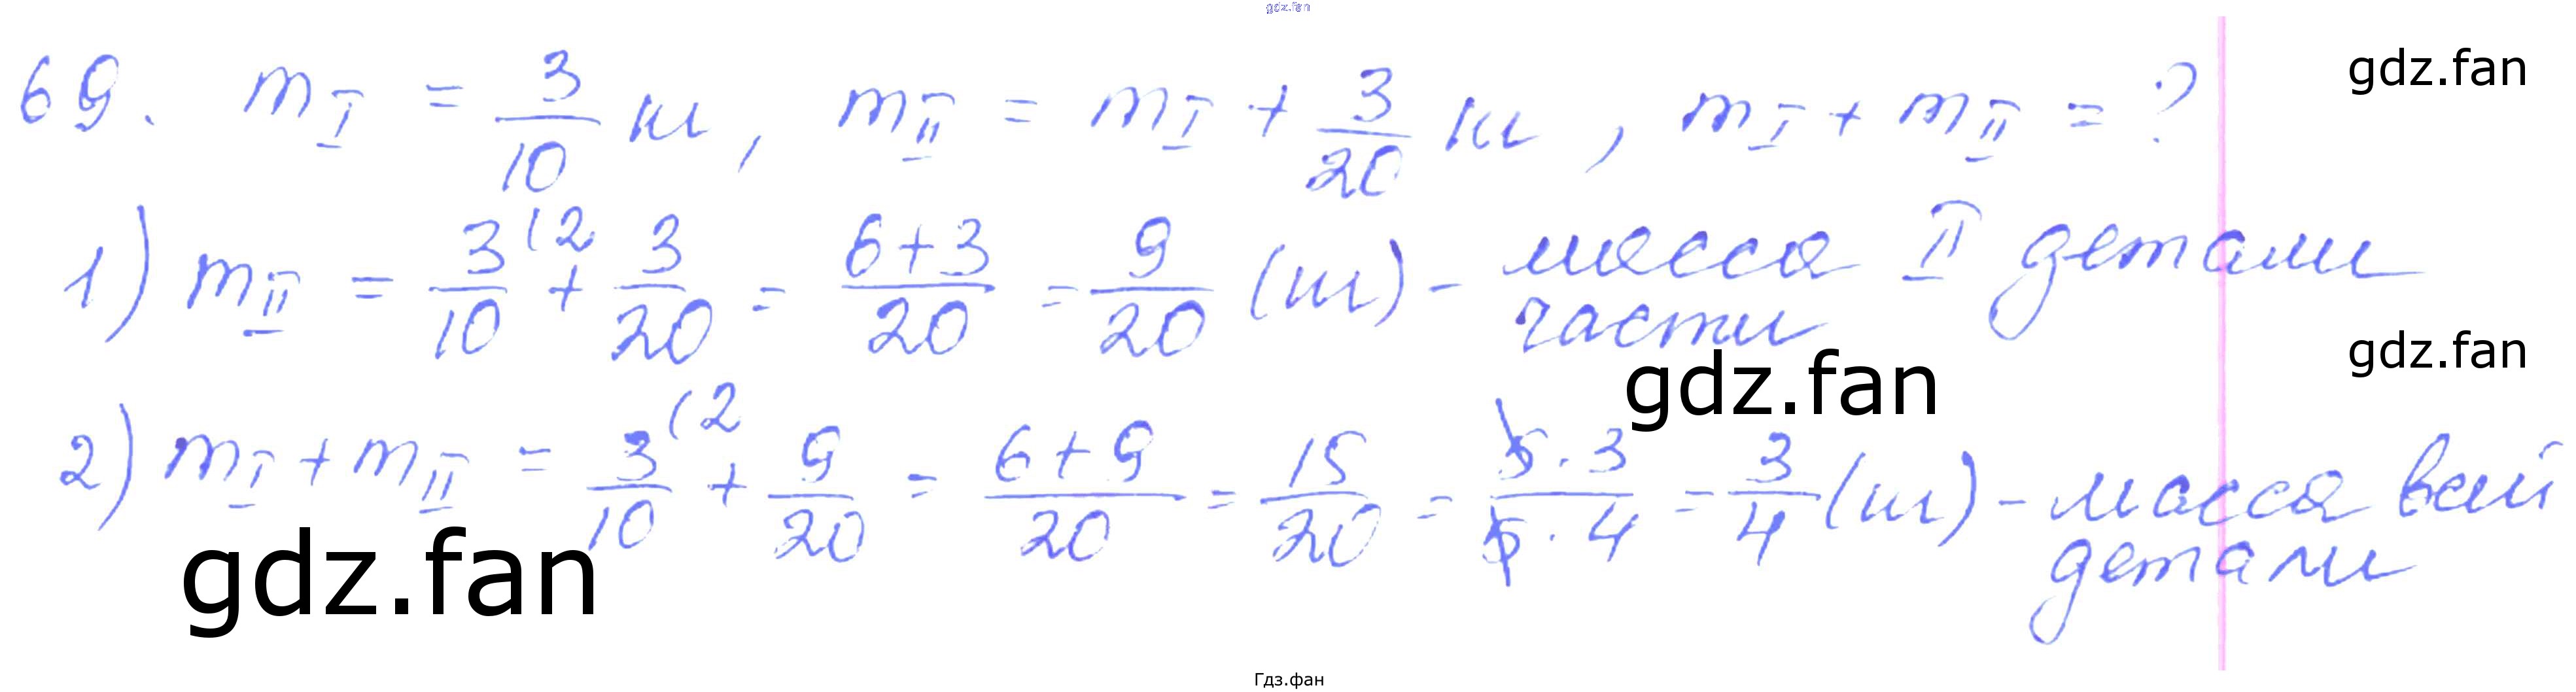 gdz.fan
69. m_I = 3/10 кг, m_II = m_I + 3/20 кг, m_I + m_II = ?
gdz.fan
1) m_II = 3/10 (2 + 3/20 = 6+3/20 = 9/20 (кг) - масса II детали
части
gdz.fan
gdz.fan
2) m_I + m_II = 3/10 (2 + 9/20 = 6+9/20 = 15/20 = 5·3/5·4 = 3/4 (кг) - масса всей
детали
gdz.fan
Гдз.фан